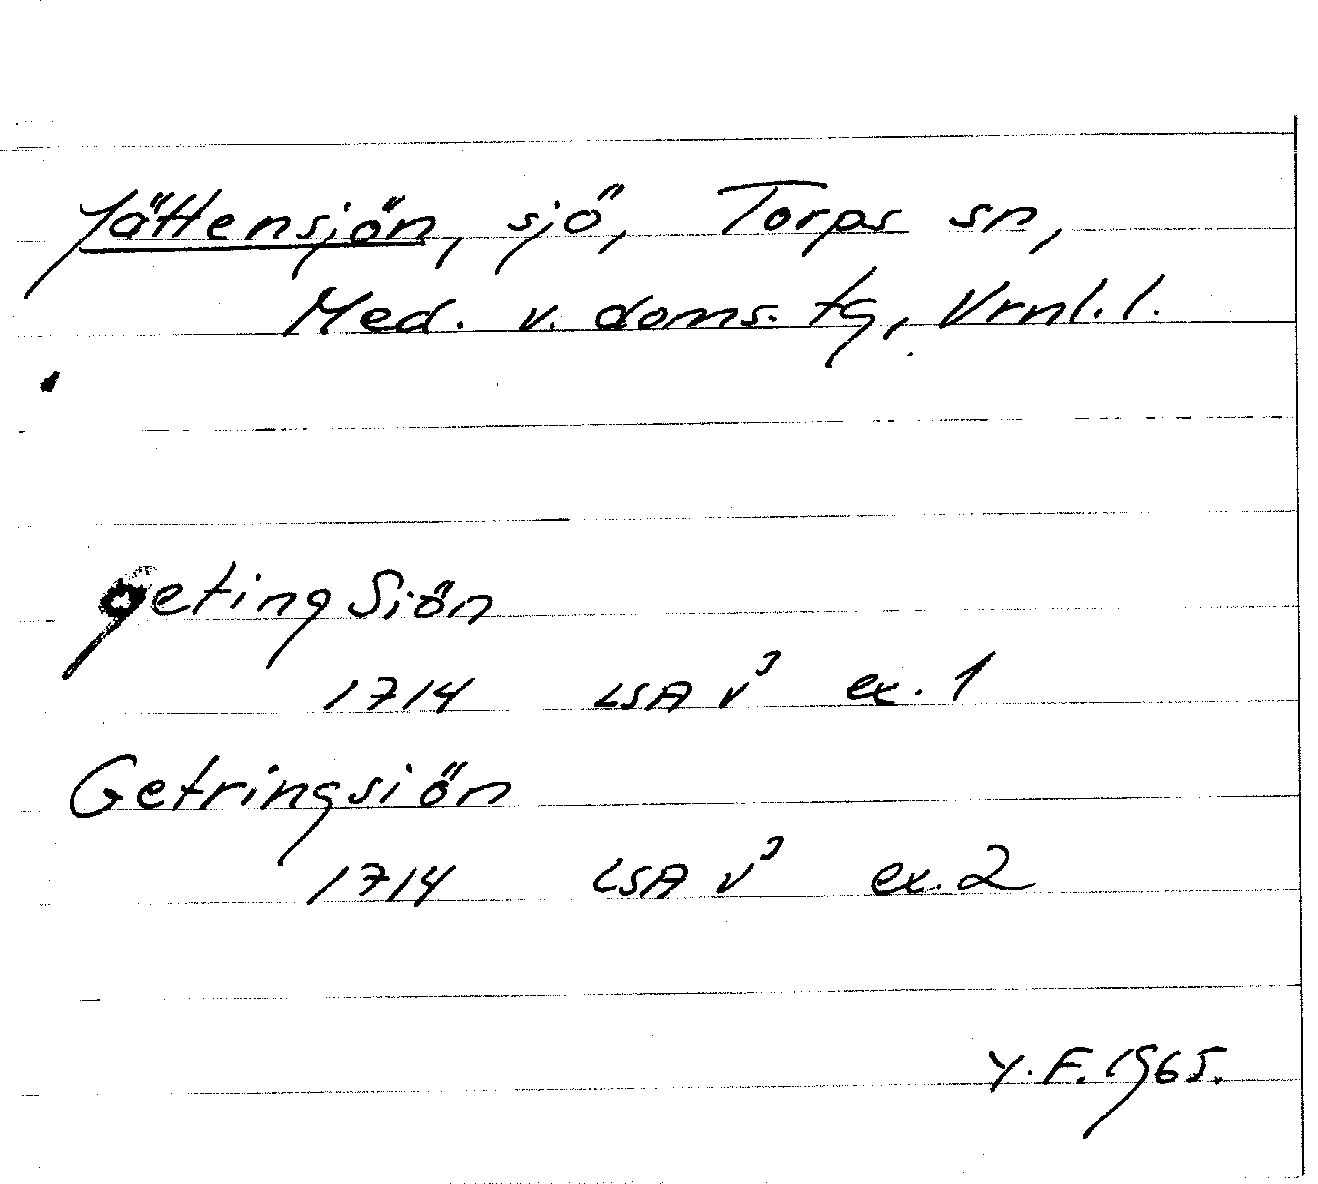 Jättensjön, sjö, Torps sn,
Med. v. doms. tg, Vrnl. l.
geting Siön
1714 LSA v³ ex. 1
Getringsiön
1714 LSA v³ ex. 2
Y. F. 1965.